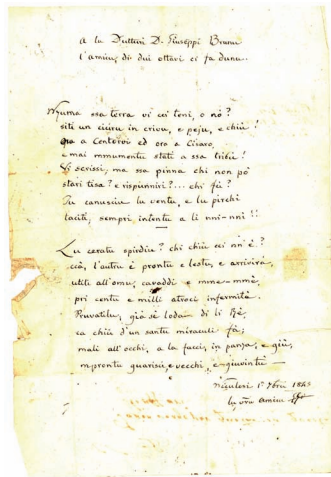 A lu Dutturi D. Giuseppi Brunu
l'amicu, di dui ottavi ci fa dunu.
Nzurma ssa terra vi ci teni, o nò?
siti un ciuru in crivu, e peju, e chiù!
Ora a Centorvi ed ora a Ciraro,
e mai mmumentu stati a ssa tribù!
Vi scrissi, ma ssa pinna chi non pò
stari tisa? e rispunniri?... chi fù?
Tu canusciu lu ventu, e lu pirchì
taciti, sempri, intentu a li nni-nni!!
Lu ceratu spirdiu? chi chiù cci nn'è?
ccà, l'autru è prontu e lestu, e arriverà,
utili all'omu, cavaddi e mme-mmè,
pri centu e milli atroci infermità.
Pruvatilu, già si loda di li Rè,
ca chiù d'un santu miraculi fà;
mali all'occhi, a la facci, in panza, e giù,
mprontu guarisci, e vecchi, e giuvintù
1845
amicu